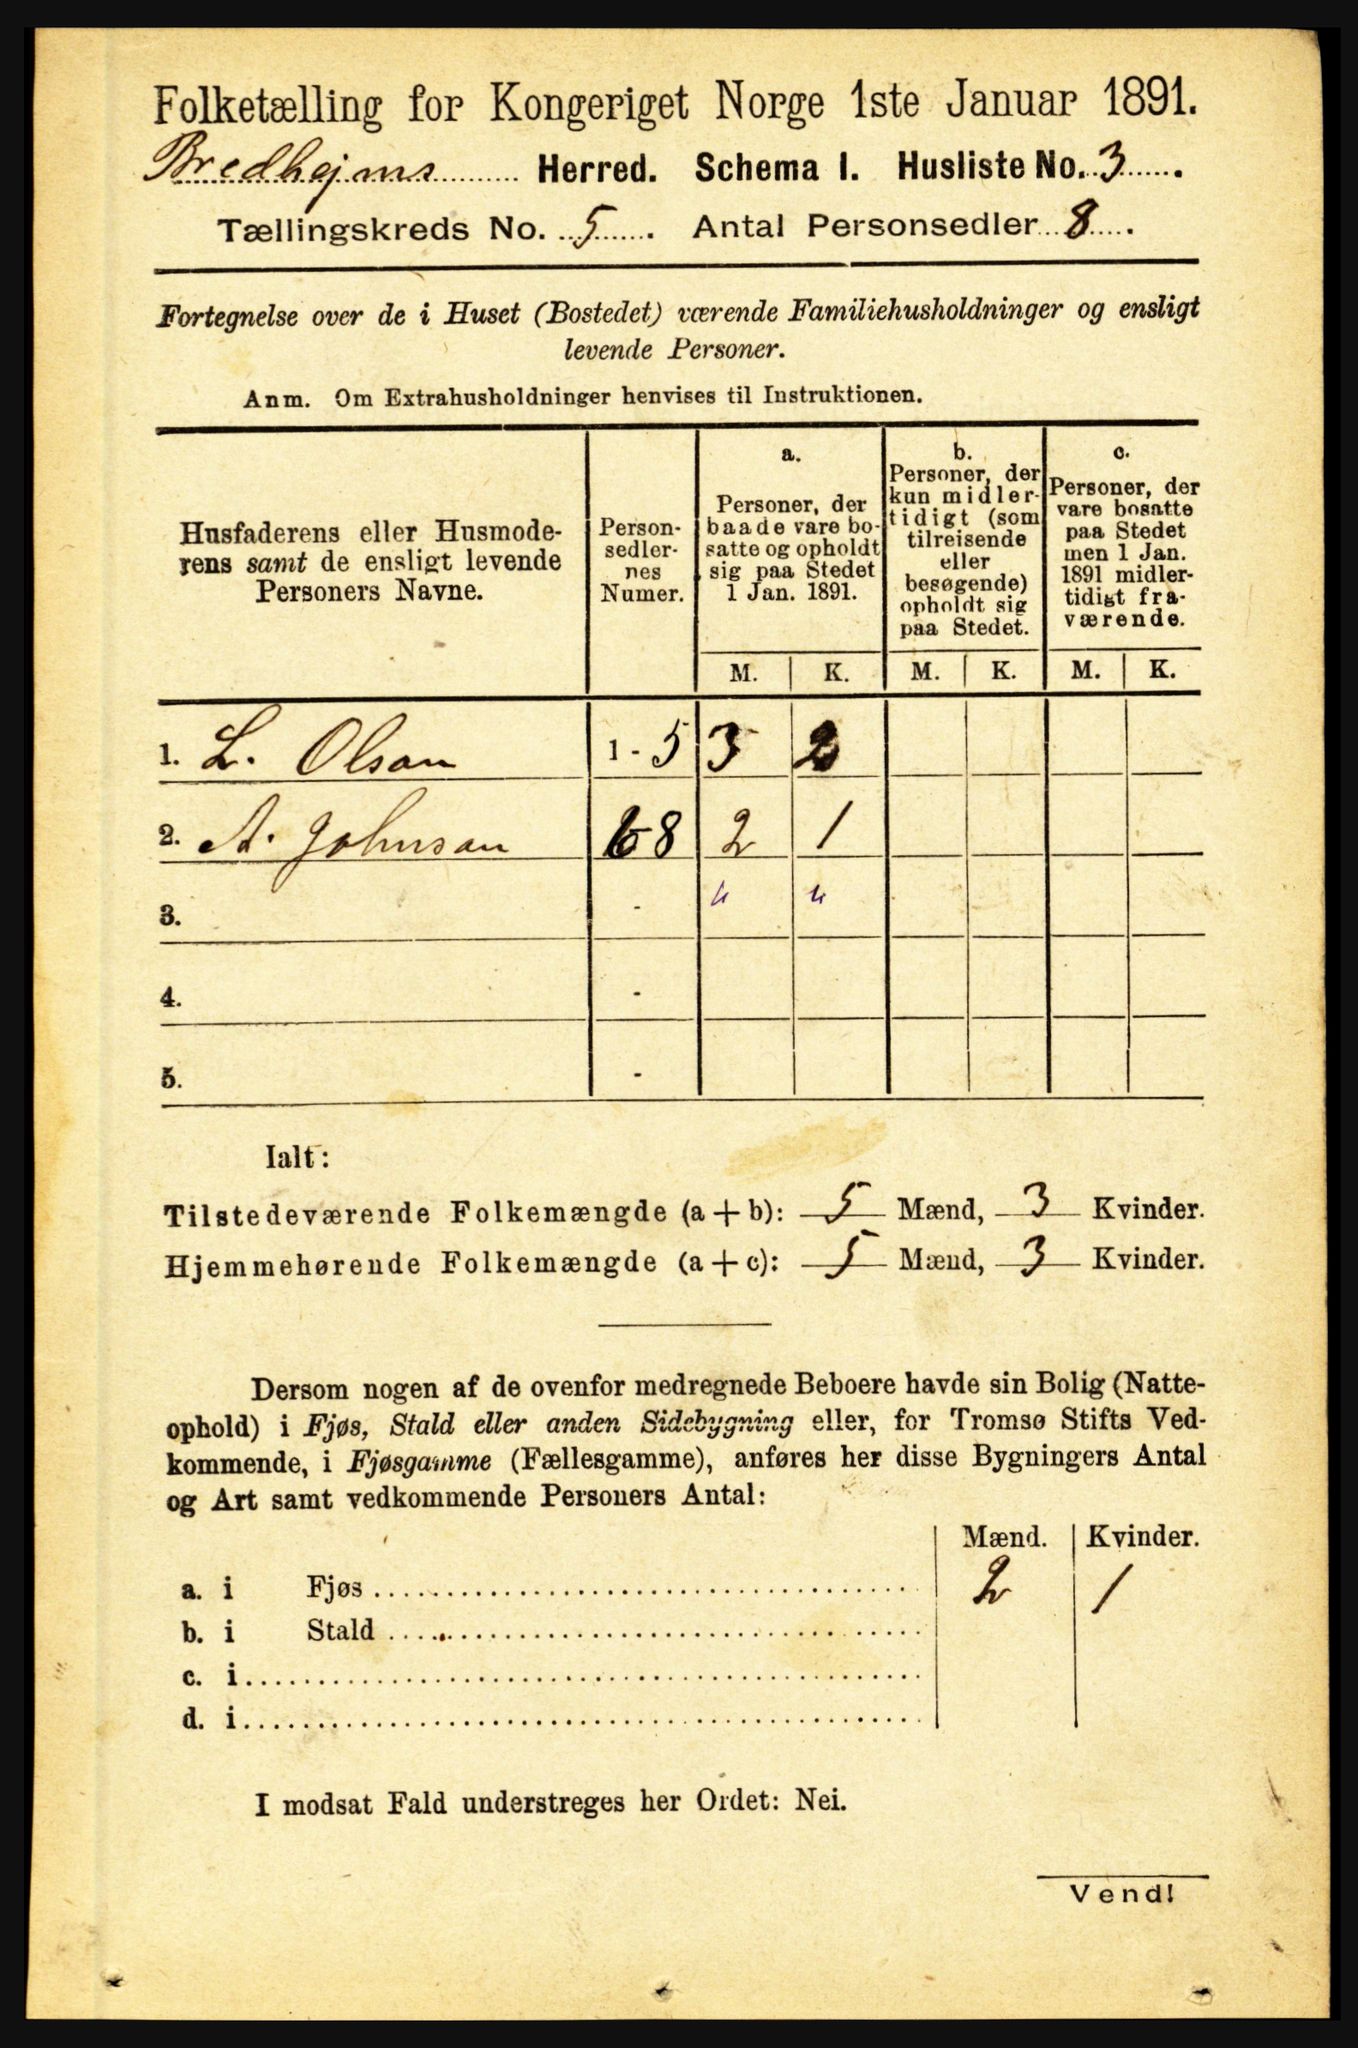 Folketælling for Kongeriget Norge 1ste Januar 1891.
Bredhejms Herred. Schema I. Husliste No. 3.
Tællingskreds No. 5. Antal Personsedler 8.
Fortegnelse over de i Huset (Bostedet) værende Familiehusholdninger og ensligt
levende Personer.
Anm. Om Extrahusholdninger henvises til Instruktionen.
Husfaderens eller Husmode-
rens samt de ensligt levende
Personers Navne.
Person-
sedler-
nes
Numer.
a.
Personer, der
baade vare bo-
satte og opholdt
sig paa Stedet
1 Jan. 1891.
b.
Personer, der
kun midler-
tidigt (som
tilreisende
eller
besøgende)
opholdt sig
paa Stedet.
c.
Personer, der
vare bosatte
paa Stedet
men 1 Jan.
1891 midler-
tidigt fra-
værende.
M. K. M. K. M. K.
1. L. Olson 1 - 5 3 2
2. A. Johnson 6-8 2 1
3. - " "
4. -
5. -
Ialt:
Tilstedeværende Folkemængde (a + b): 5 Mænd, 3 Kvinder.
Hjemmehørende Folkemængde (a + c): 5 Mænd, 3 Kvinder.
Dersom nogen af de ovenfor medregnede Beboere havde sin Bolig (Natte-
ophold) i Fjøs, Stald eller anden Sidebygning eller, for Tromsø Stifts Ved-
kommende, i Fjøsgamme (Fællesgamme), anføres her disse Bygningers Antal
og Art samt vedkommende Personers Antal:
Mænd. Kvinder.
a. i Fjøs 2 1
b. i Stald
c. i
d. i
I modsat Fald understreges her Ordet: Nei.
Vend!